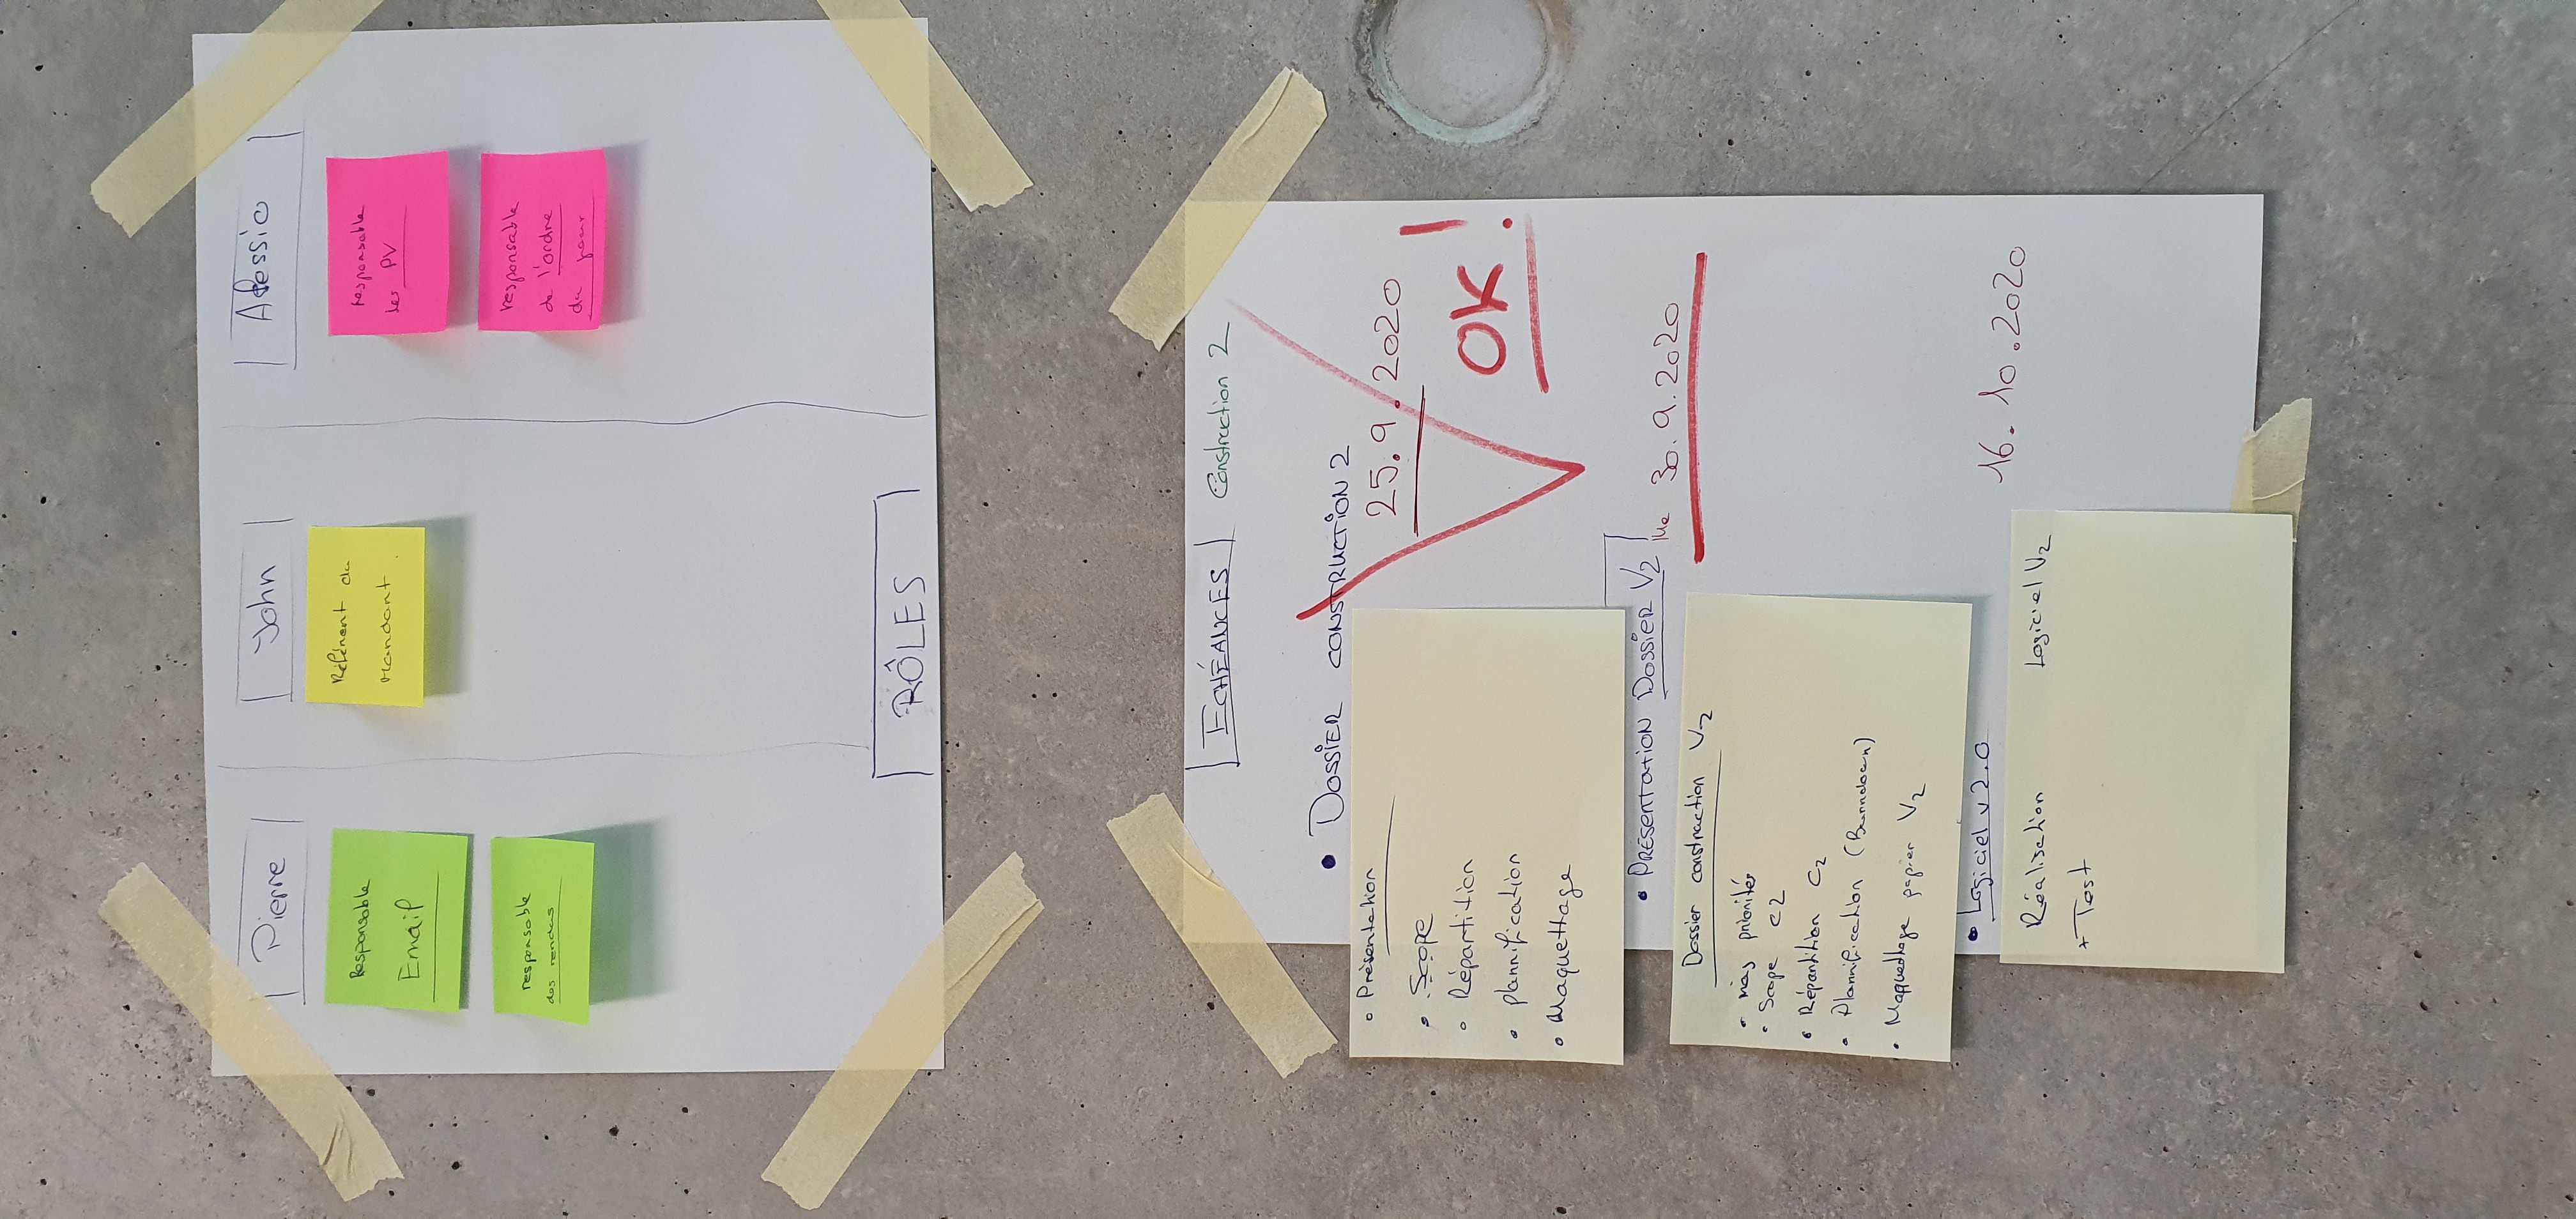 Pierre
John
Alessio
Responsable
Email
responsable
des rendus
Référent du
Mandant.
responsable
des PV
responsable
de l'ordre
du jour
RÔLES
ECHÉANCES Construction 2
• DOSSIER CONSTRUCTION 2
25.9.2020
OK!
• Présentation
• Scope
• Répartition
• plannification
• Maquettage
• PRÉSENTATION DOSSIER V2 Me 30.9.2020
Dossier construction V2
• priorités
• Scope C2
• Répartition C2
• Plannification (Burndown)
• Maquettage papier V2
• Logiciel v2.0
16.10.2020
Réalisation Logiciel V2
+ Test